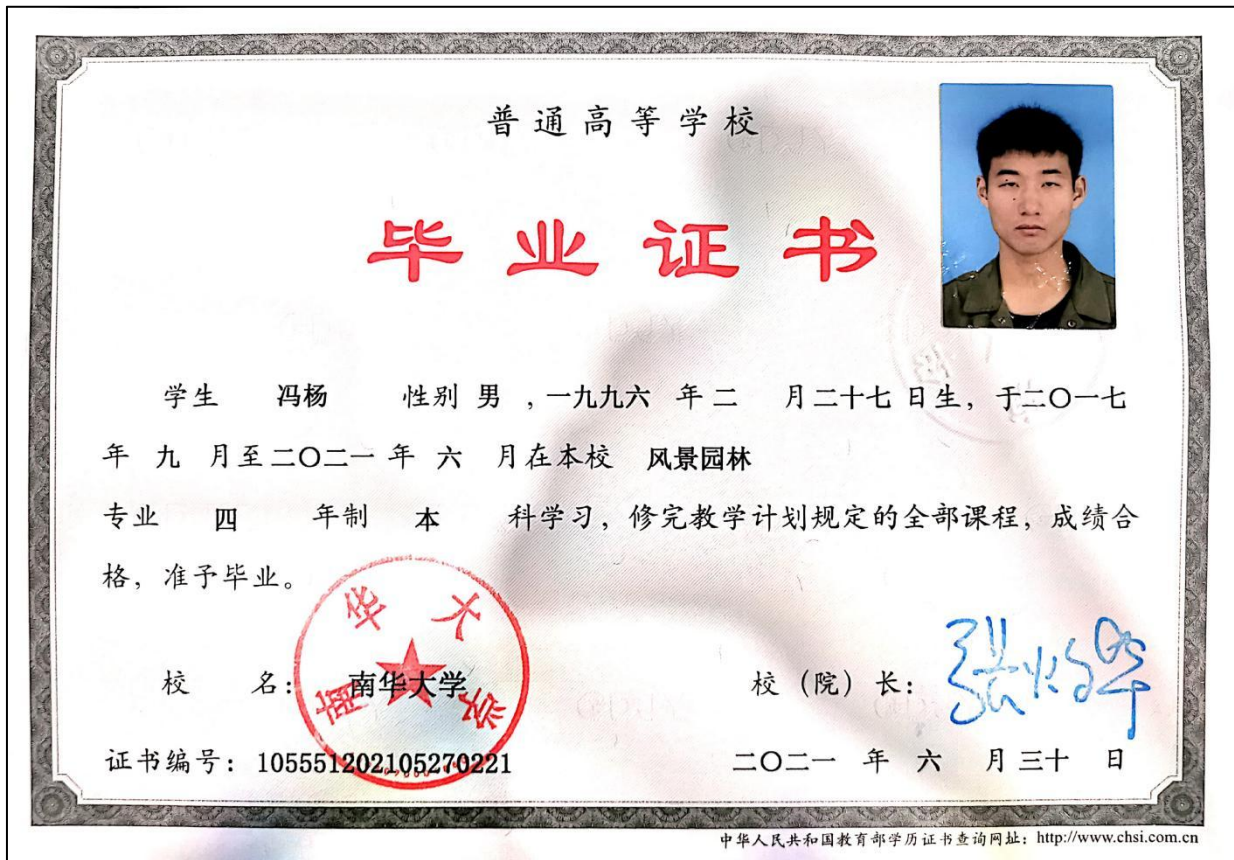 普通高等学校
毕业证书
学生 冯杨 性别 男 ，一九九六 年 二 月 二十七 日生，于二〇一七
年 九 月至 二〇二一 年 六 月在本校 风景园林
专业 四 年制 本 科学习，修完教学计划规定的全部课程，成绩合
格，准予毕业。
南华大学
校 名： 南华大学
校（院）长：
证书编号：105551202105270221
二〇二一 年 六 月 三十 日
中华人民共和国教育部学历证书查询网址：http://www.chsi.com.cn